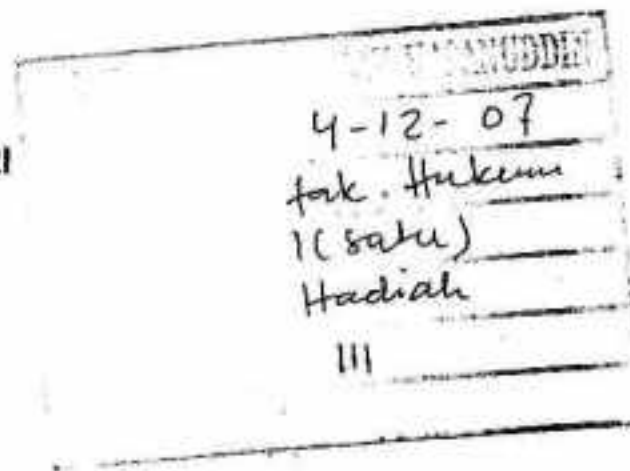 4-12-07
fak. Hukum
1(satu)
Hadiah
III